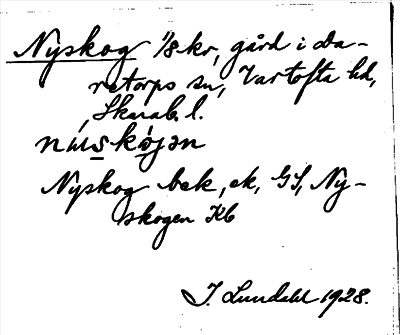 Nyskog 1/8 kr, gård i Da-
retorps sn, Vartofta hd,
Skarab. l.
nẃskøjən
Nyskog bek, ek, GS, Ny-
skogen Kb
J. Lundahl 1928.